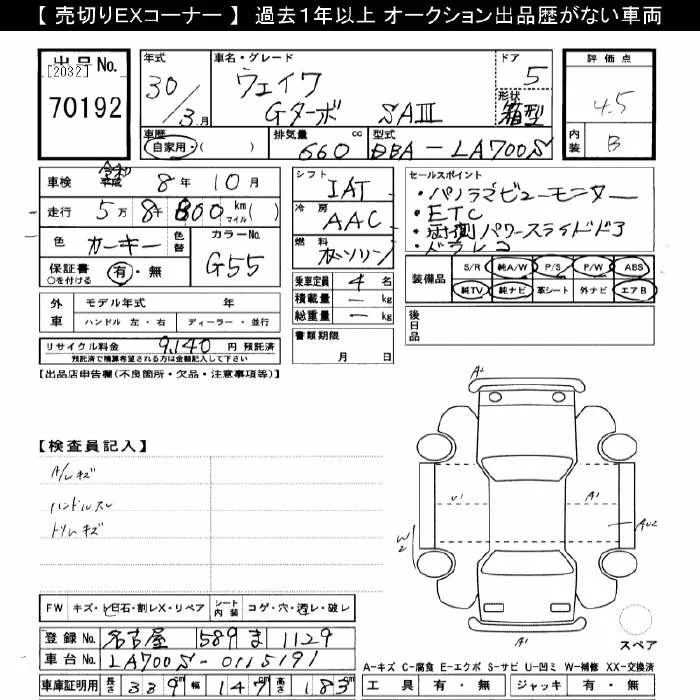 【 売切りEXコーナー 】 過去１年以上 オークション出品歴がない車両
出品No.
[2032]
70192
年式
30/3月
車名・グレード
ウェイク
Gターボ SAⅢ
ドア
5
形状
箱型
評価点
4.5
内装
B
車歴
自家用・( )
排気量
660 cc
型式
DBA-LA700S
車検 令和 平成 8年 10月
走行 5万 8千 800 km マイル( )
色 カーキー 色替
カラーNo.
G55
保証書 有・無
○を付ける
外車 モデル年式 年
ハンドル 左・右 ディーラー・並行
リサイクル料金 9,140 円 預託済
預託済で精算希望される方は金額記入して下さい
シフト
IAT
冷房
AAC
燃料
ガソリン
乗車定員 4 名
積載量 － kg
総重量 － kg
書類期限
月 日
セールスポイント
・パノラマビューモニター
・ETC
・両側パワースライドドア
・ドラレコ
装備品 S/R 純A/W P/S P/W ABS
純TV 純ナビ 革シート 外ナビ エアB
後日品
【出品店申告欄(不良箇所・欠品・注意事項等)】
【検査員記入】
A/Wキズ
ハンドルスレ
トリムキズ
A2
U1
A1
AU2
W2
A1
スペア
FW キズ・飛石・割レX・リペア シート内装 コゲ・穴・透レ・破レ
登録No. 名古屋 589 ま 1129
車台No. LA700S-0115191
車庫証明用 長さ 339cm 幅 147cm 高さ 183cm
A-キズ C-腐食 E-エクボ S-サビ U-凹ミ W-補修 XX-交換済
工具 有・無 ジャッキ 有・無